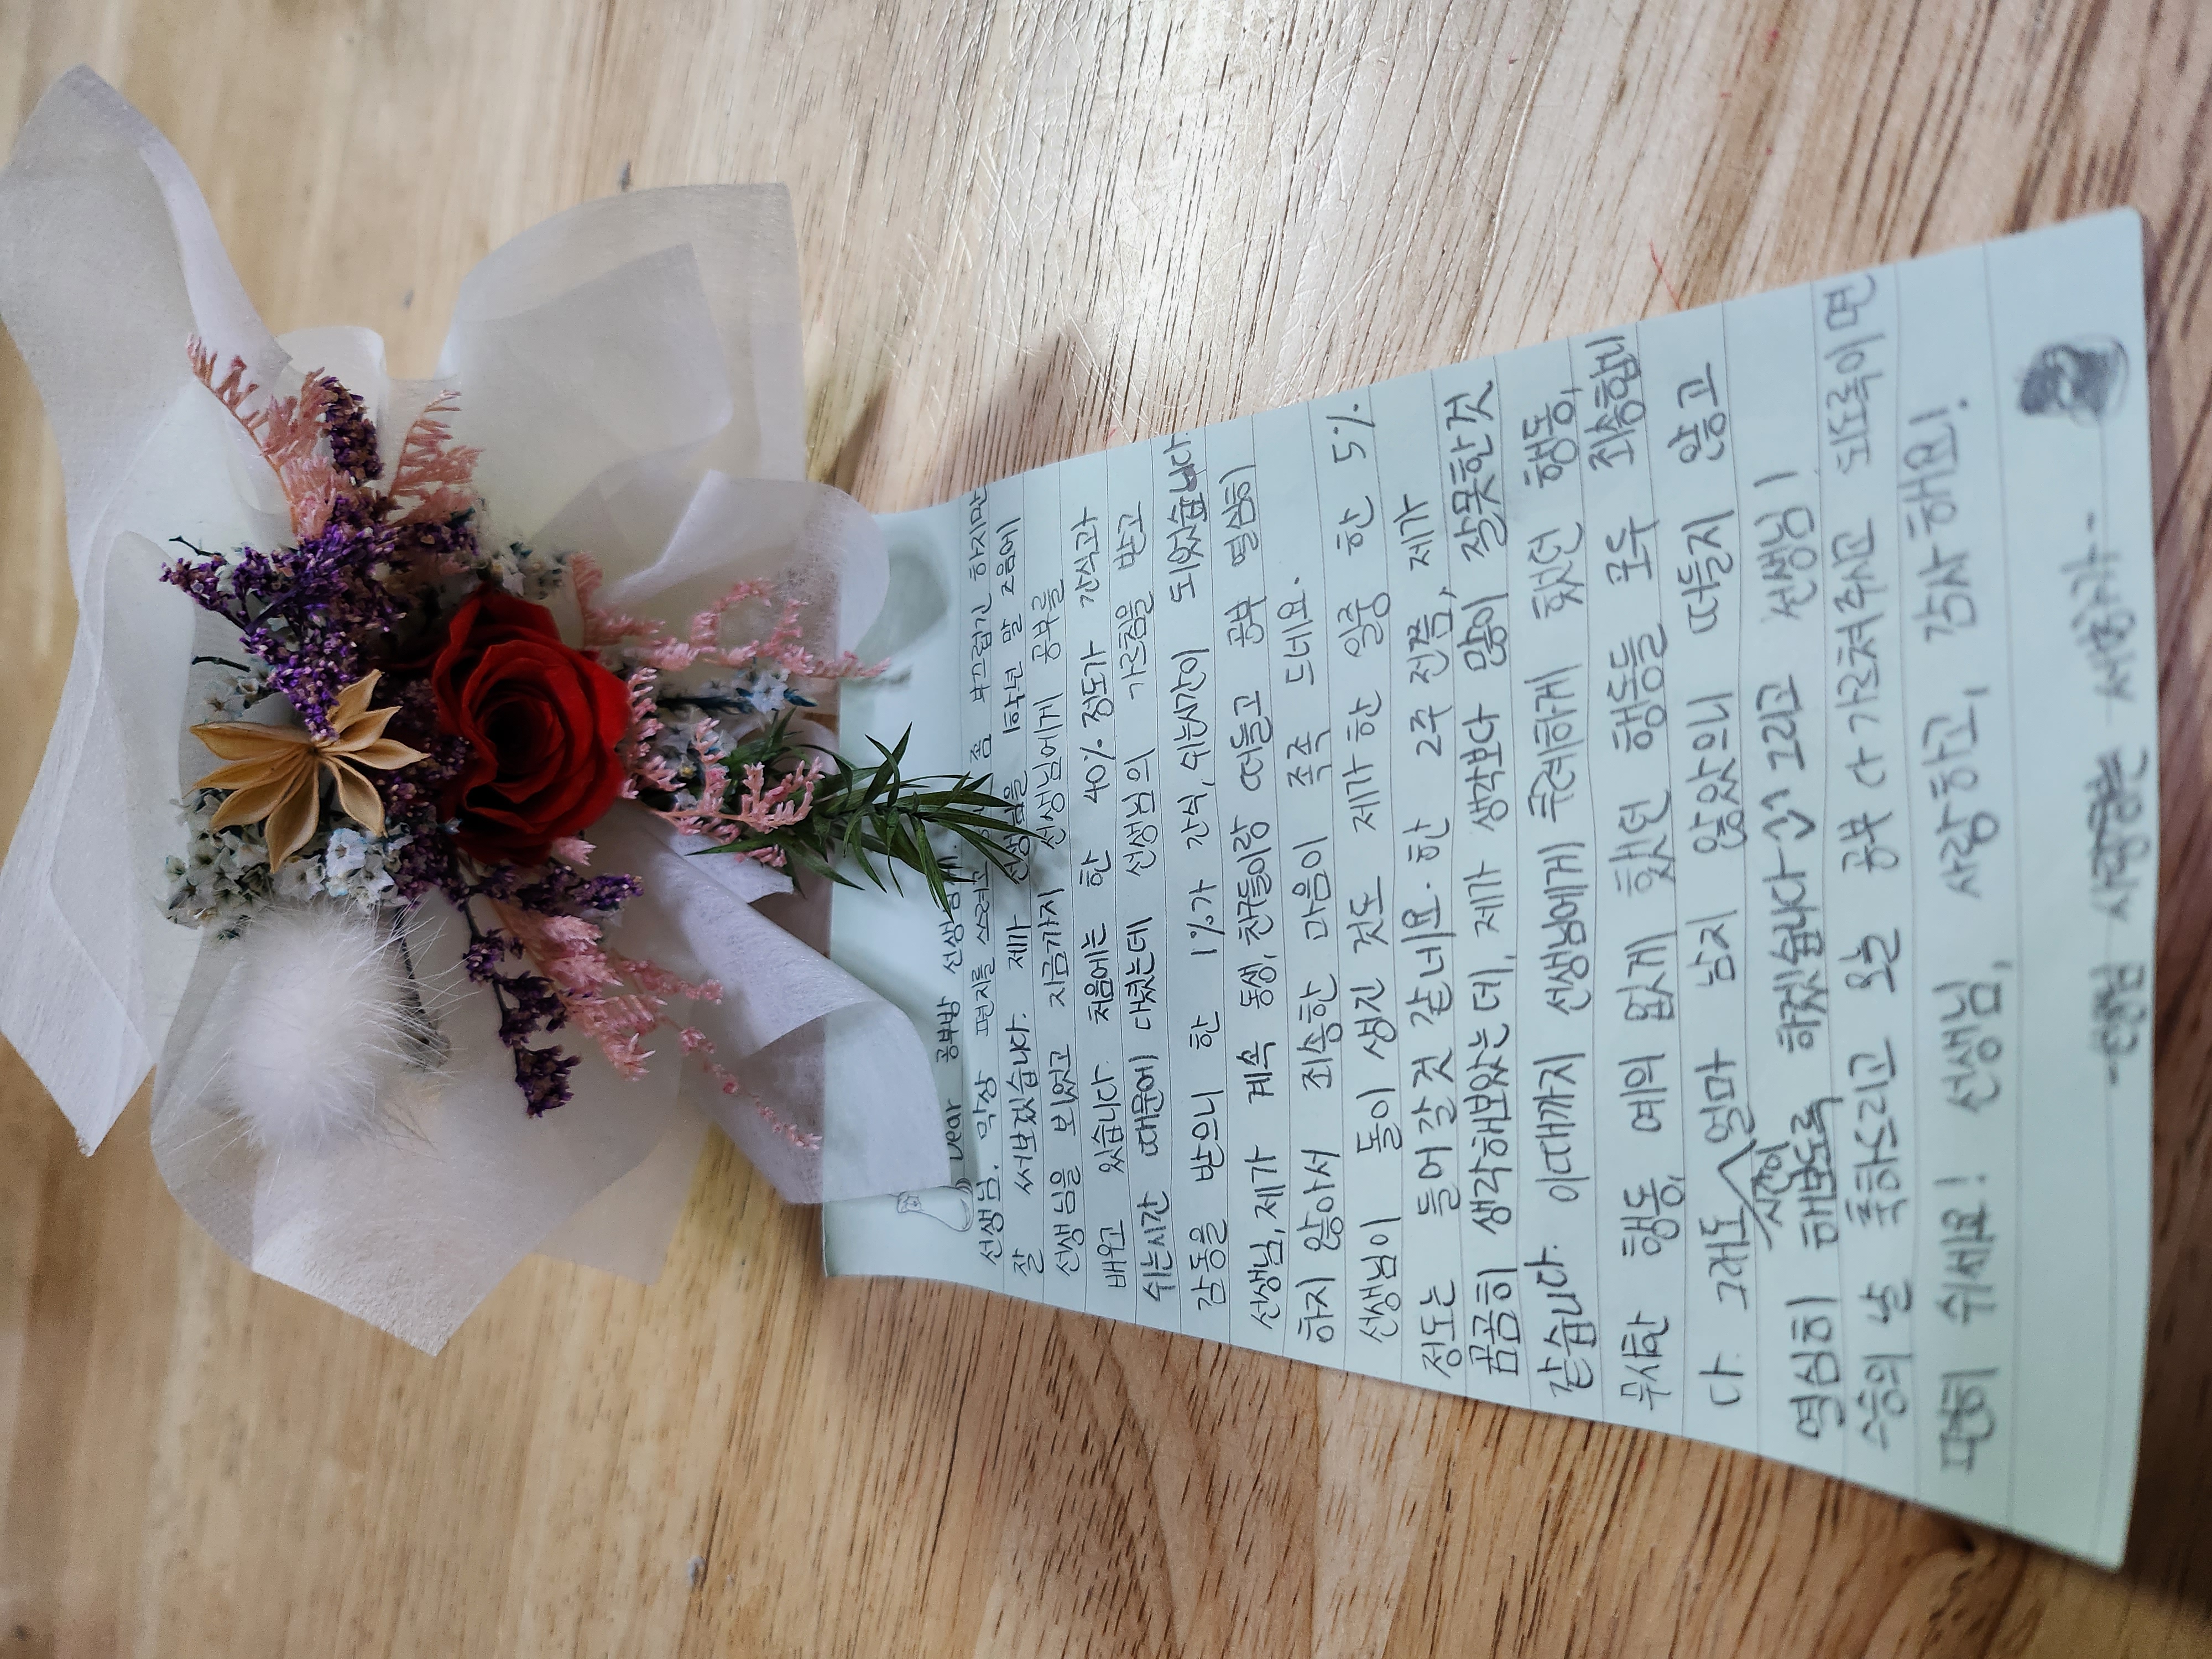 Dear 공부방 선생님께.
선생님. 막상 편지를 쓰려고 좀 부끄럽긴 하지만
잘 써보겠습니다. 제가 선생님을 1학년 말 즈음에
선생님을 뵈었고 지금까지 선생님에게 공부를
배우고 있습니다. 처음에는 한 40% 정도가 간식과
쉬는시간 때문에 다녔는데 선생님의 가르침을 받고
감동을 받으니 한 1%가 간식, 쉬는시간이 되었습니다.
선생님, 제가 계속 동생, 친구들이랑 떠들고 공부 열심히
하지 않아서 죄송한 마음이 족족 드네요.
선생님이 돌이 생긴 것도 제가 한 일중 한 5%
정도는 들어갈 것 같네요. 한 2주 전쯤, 제가
곰곰히 생각해보았는데, 제가 생각보다 많이 잘못한것
같습니다. 이때까지 선생님에게 무례하게 했던 행동,
무시한 행동, 예의 없게 했던 행동들 모두 죄송합니
다. 그래도 시간이 얼마 남지 않았으니 떠들지 않고
열심히 해보도록 하겠습니다 그리고 쌤생님!
스승의 날 축하드리고 오늘 공부 다 가르쳐주시고 되도록이면
편히 쉬세요! 선생님, 사랑하고, 감사해요!